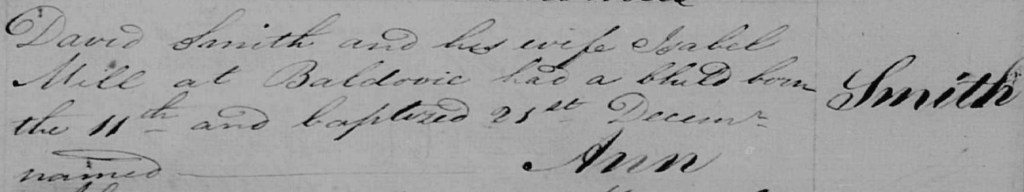 David Smith and his wife Isabel
Mill at Baldovie had a Child born
the 11th and baptized 21st Decemr
named Ann
Smith